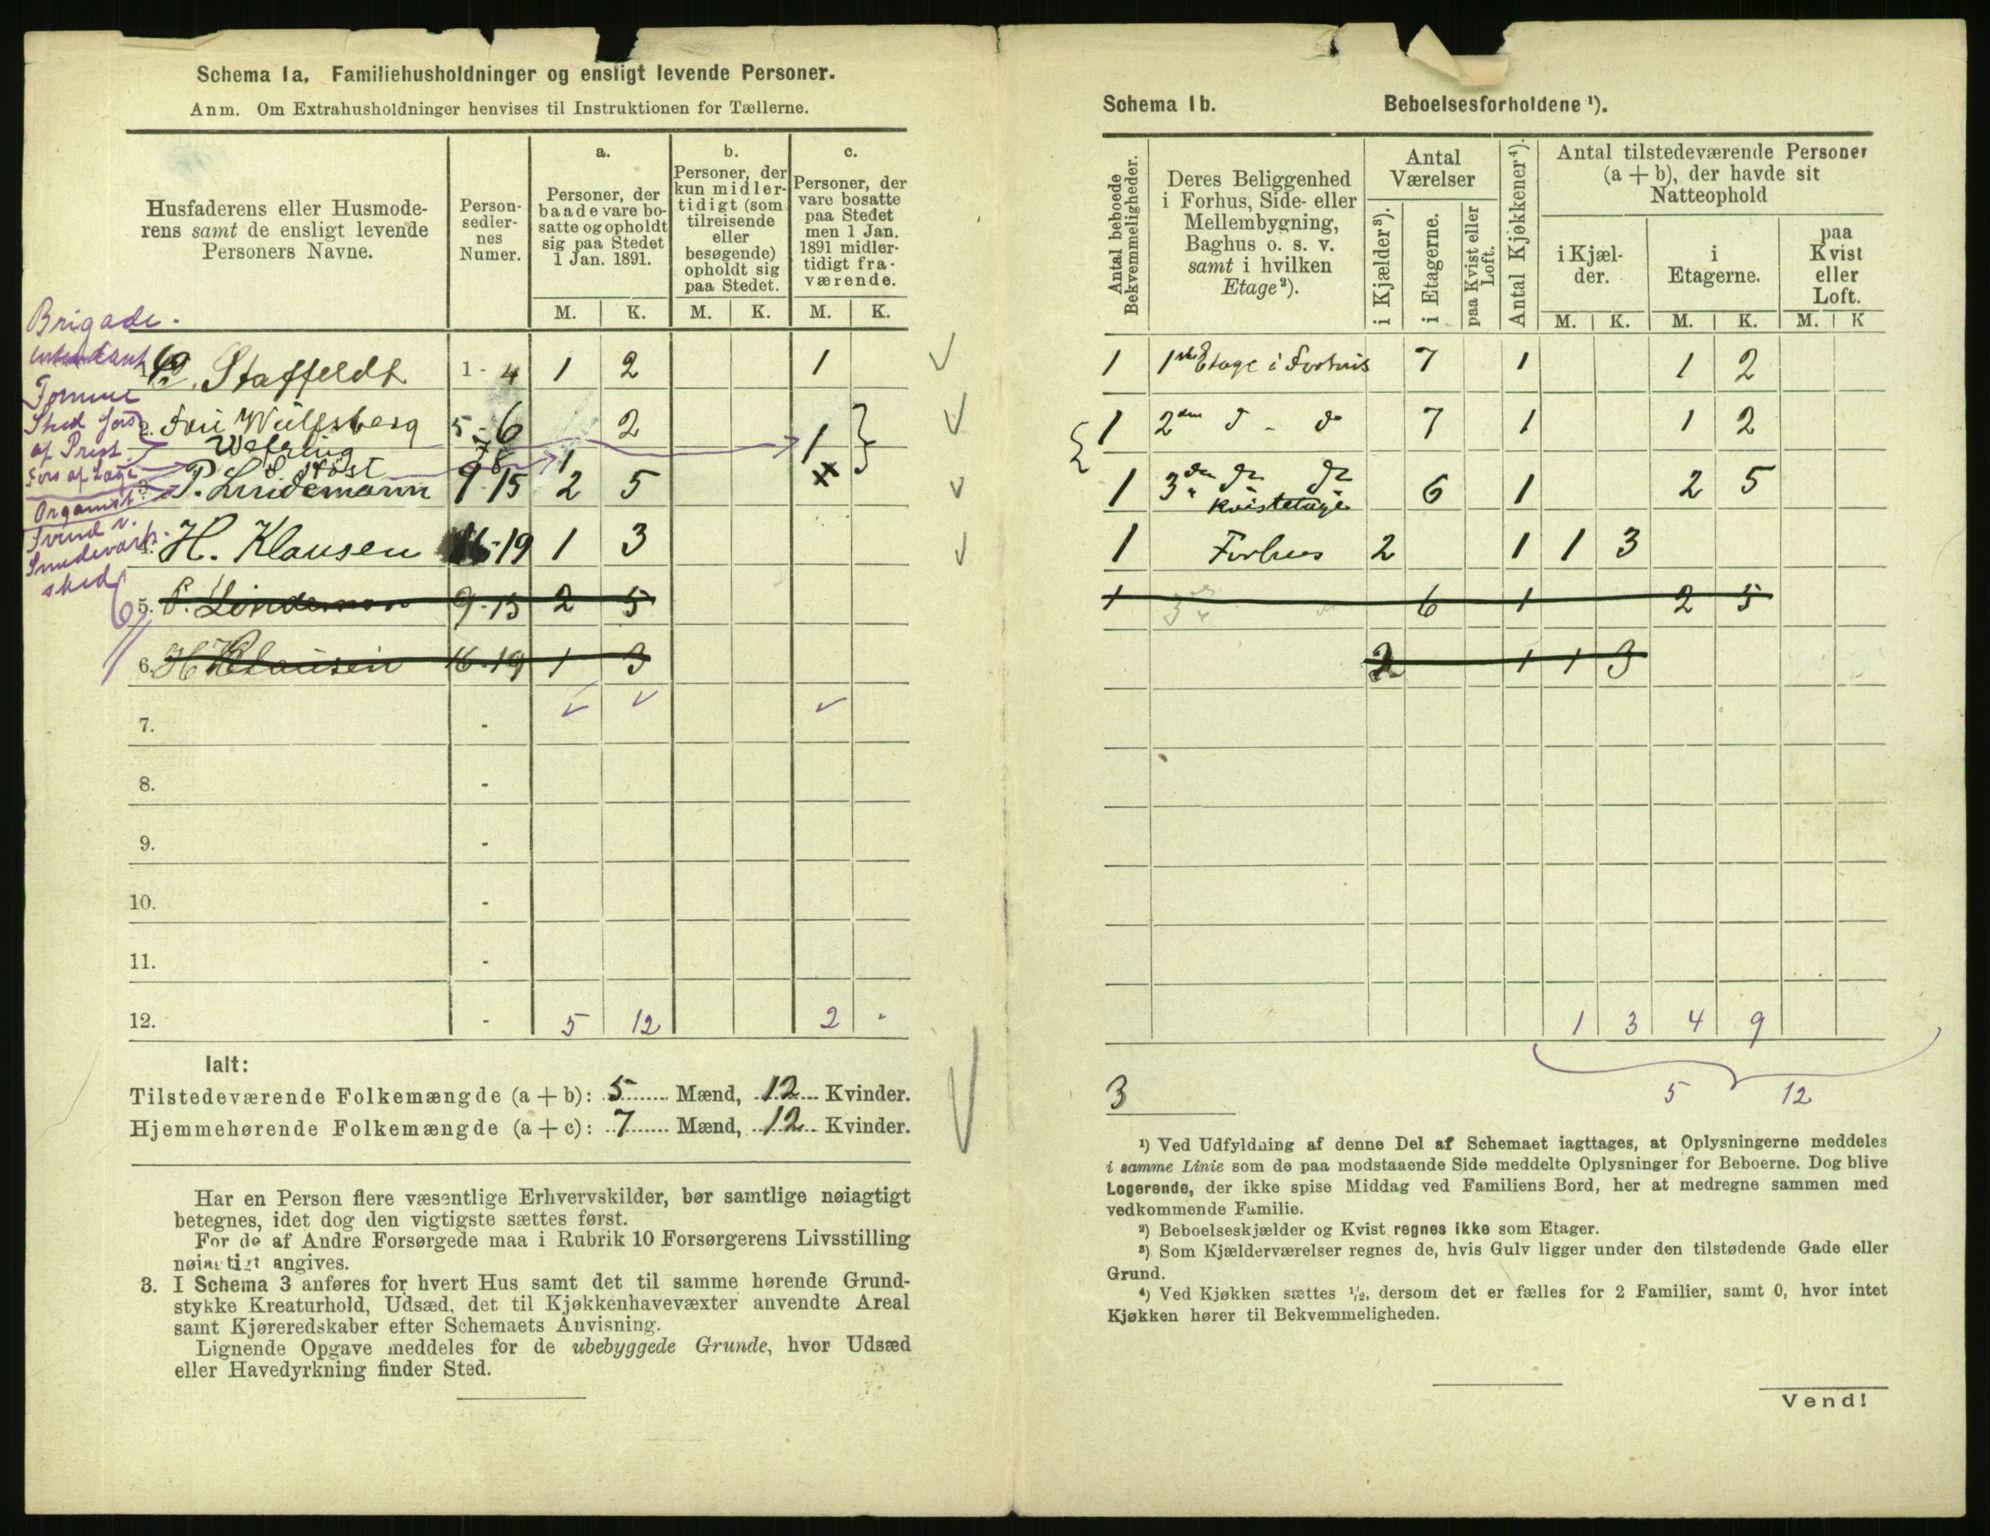 Schema 1a. Familiehusholdninger og ensligt levende Personer.
Anm. Om Extrahusholdninger henvises til Instruktionen for Tællerne.
Husfaderens eller Husmoderens samt de ensligt levende Personers Navne.
Personsedlernes Numer.
a.
Personer, der baade vare bosatte og opholdt sig paa Stedet 1 Jan. 1891.
b.
Personer, der kun midlertidigt (som tilreisende eller besøgende) opholdt sig paa Stedet.
c.
Personer, der vare bosatte paa Stedet men 1 Jan. 1891 midlertidigt fraværende.
M. K. M. K. M. K.
Brigade.
1. Staffeldt 1 - 4 1 2 1
2. Wulfsberg 5 - 6 2
Wefring 1
Høst 1
3. P. Lindemann 9 - 15 2 5
af Præst.
Organist
4. H. Klausen 16 - 19 1 3
5. P. Lindeman 9 - 15 2 5
6. H Klausen 16 - 19 1 3
7. -
8. -
9. -
10. -
11. -
12. - 5 12 2
Ialt:
Tilstedeværende Folkemængde (a + b): 5 Mænd, 12 Kvinder.
Hjemmehørende Folkemængde (a + c): 7 Mænd, 12 Kvinder.
Har en Person flere væsentlige Erhvervskilder, bør samtlige nøiagtigt
betegnes, idet dog den vigtigste sættes først.
For de af Andre Forsørgede maa i Rubrik 10 Forsørgerens Livsstilling
nøiagtigt angives.
3. I Schema 3 anføres for hvert Hus samt det til samme hørende Grund-
stykke Kreaturhold, Udsæd, det til Kjøkkenhavevæxter anvendte Areal
samt Kjøreredskaber efter Schemaets Anvisning.
Lignende Opgave meddeles for de ubebyggede Grunde, hvor Udsæd
eller Havedyrkning finder Sted.
Schema 1b. Beboelsesforholdene ¹).
Antal beboede Bekvemmeligheder.
Deres Beliggenhed i Forhus, Side- eller Mellembygning, Baghus o. s. v. samt i hvilken Etage²).
Antal Værelser
i Kjælder³).
i Etagerne.
paa Kvist eller Loft.
Antal Kjøkkener⁴).
Antal tilstedeværende Personer (a + b), der havde sit Natteophold
i Kjælder.
i Etagerne.
paa Kvist eller Loft.
M. K. M. K. M. K
1 1ste Etage i Forhus 7 1 1 2
1 2den do - do 7 1 1 2
1 3die do do 6 1 2 5
Kvistetage
1 Forhus 2 1 1 3
1 3 6 1 2 5
2 1 1 3
1 3 4 9
5 12
3
¹) Ved Udfyldning af denne Del af Schemaet iagttages, at Oplysningerne meddeles
i samme Linie som de paa modstaaende Side meddelte Oplysninger for Beboerne. Dog blive
Logerende, der ikke spise Middag ved Familiens Bord, her at medregne sammen med
vedkommende Familie.
²) Beboelseskjælder og Kvist regnes ikke som Etager.
³) Som Kjælderværelser regnes de, hvis Gulv ligger under den tilstødende Gade eller
Grund.
⁴) Ved Kjøkken sættes ½, dersom det er fælles for 2 Familier, samt 0, hvor intet
Kjøkken hører til Bekvemmeligheden.
Vend!